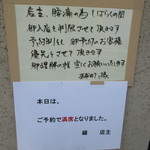 店主、腰痛の為しばらくの間
御入店を制限させて頂きます
予約制にし 御予約のお客様
優先とさせて 頂きます
御理解の程 宜しくお願いいたします
本日は、
ご予約で満席となりました。
店主